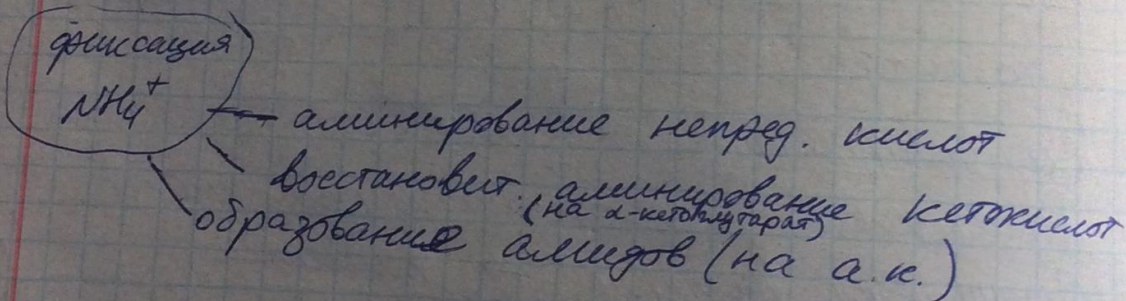 фиксация
NH4+
аминирование непред. кислот
восстановит. аминирование кетокислот
(на α-кетоглутарат)
образование амидов (на а.к.)